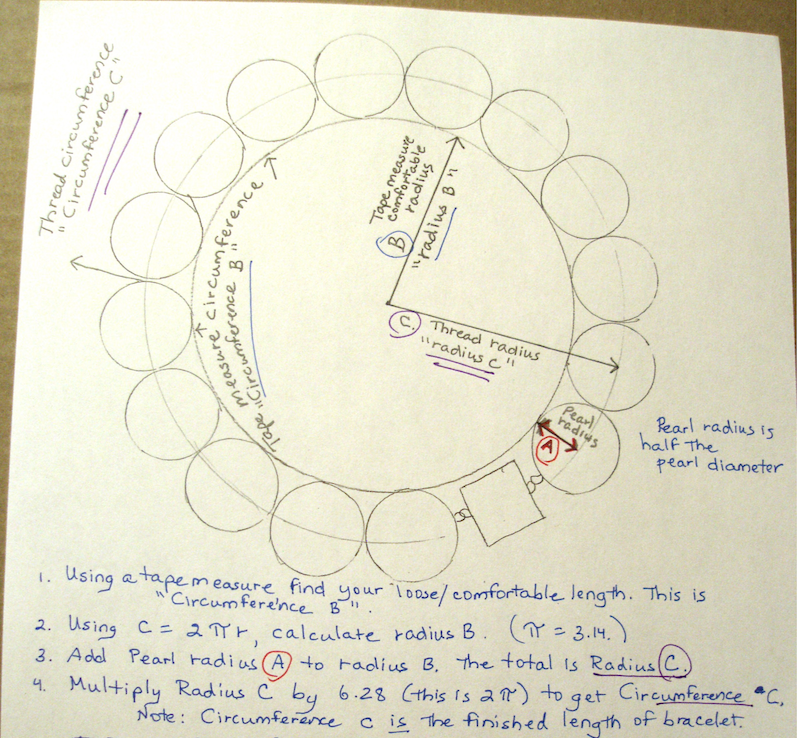 Thread circumference
"Circumference C"
Tape measure circumference
"Circumference B"
Tape measure
comfortable
radius
B
"radius B"
C. Thread radius
"radius C"
Pearl
radius
A
Pearl radius is
half the
pearl diameter
1. Using a tape measure find your loose/comfortable length. This is
"Circumference B".
2. Using C = 2πr, calculate radius B. (π = 3.14.)
3. Add Pearl radius A to radius B. The total is Radius C.
4. Multiply Radius C by 6.28 (this is 2π) to get Circumference C.
Note: Circumference C is the finished length of bracelet.